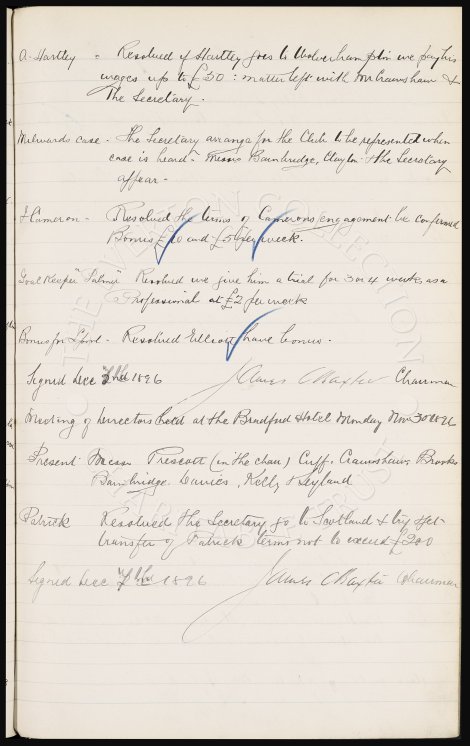 A. Hartley - Resolved if Hartley goes to Wolverhampton we pay his
wages up to £30: matter left with Mr Crawshaw &
The Secretary.
Milwards case - The Secretary arrange for the Club to be represented when
case is heard - Messrs Bainbridge, Clayton & the Secretary
appear -
J Cameron - Resolved the terms of Camerons engagement be confirmed
Bonus £ 10 and per week.
Goal Keeper "Palmer" Resolved we give him a trial for 3 or 4 weeks as a
Professional at £2 per week
Bonus for L'pool - Resolved Elliott have bonus -
Signed Dec 7th 1896 James C Baxter Chairman
Meeting of Directors held at the Bradford Hotel Monday Nov 30 1896
Present Messrs Prescott (in the chair) Cuff, Crawshaw, Brooks
Bainbridge, Davies, Kelly & Leyland
Patrick Resolved The Secretary go to Scotland & try & get
transfer of Patrick terms not to exceed £200
Signed Dec 7th 1896 James C Baxter Chairman
THE EVERTON COLLECTION